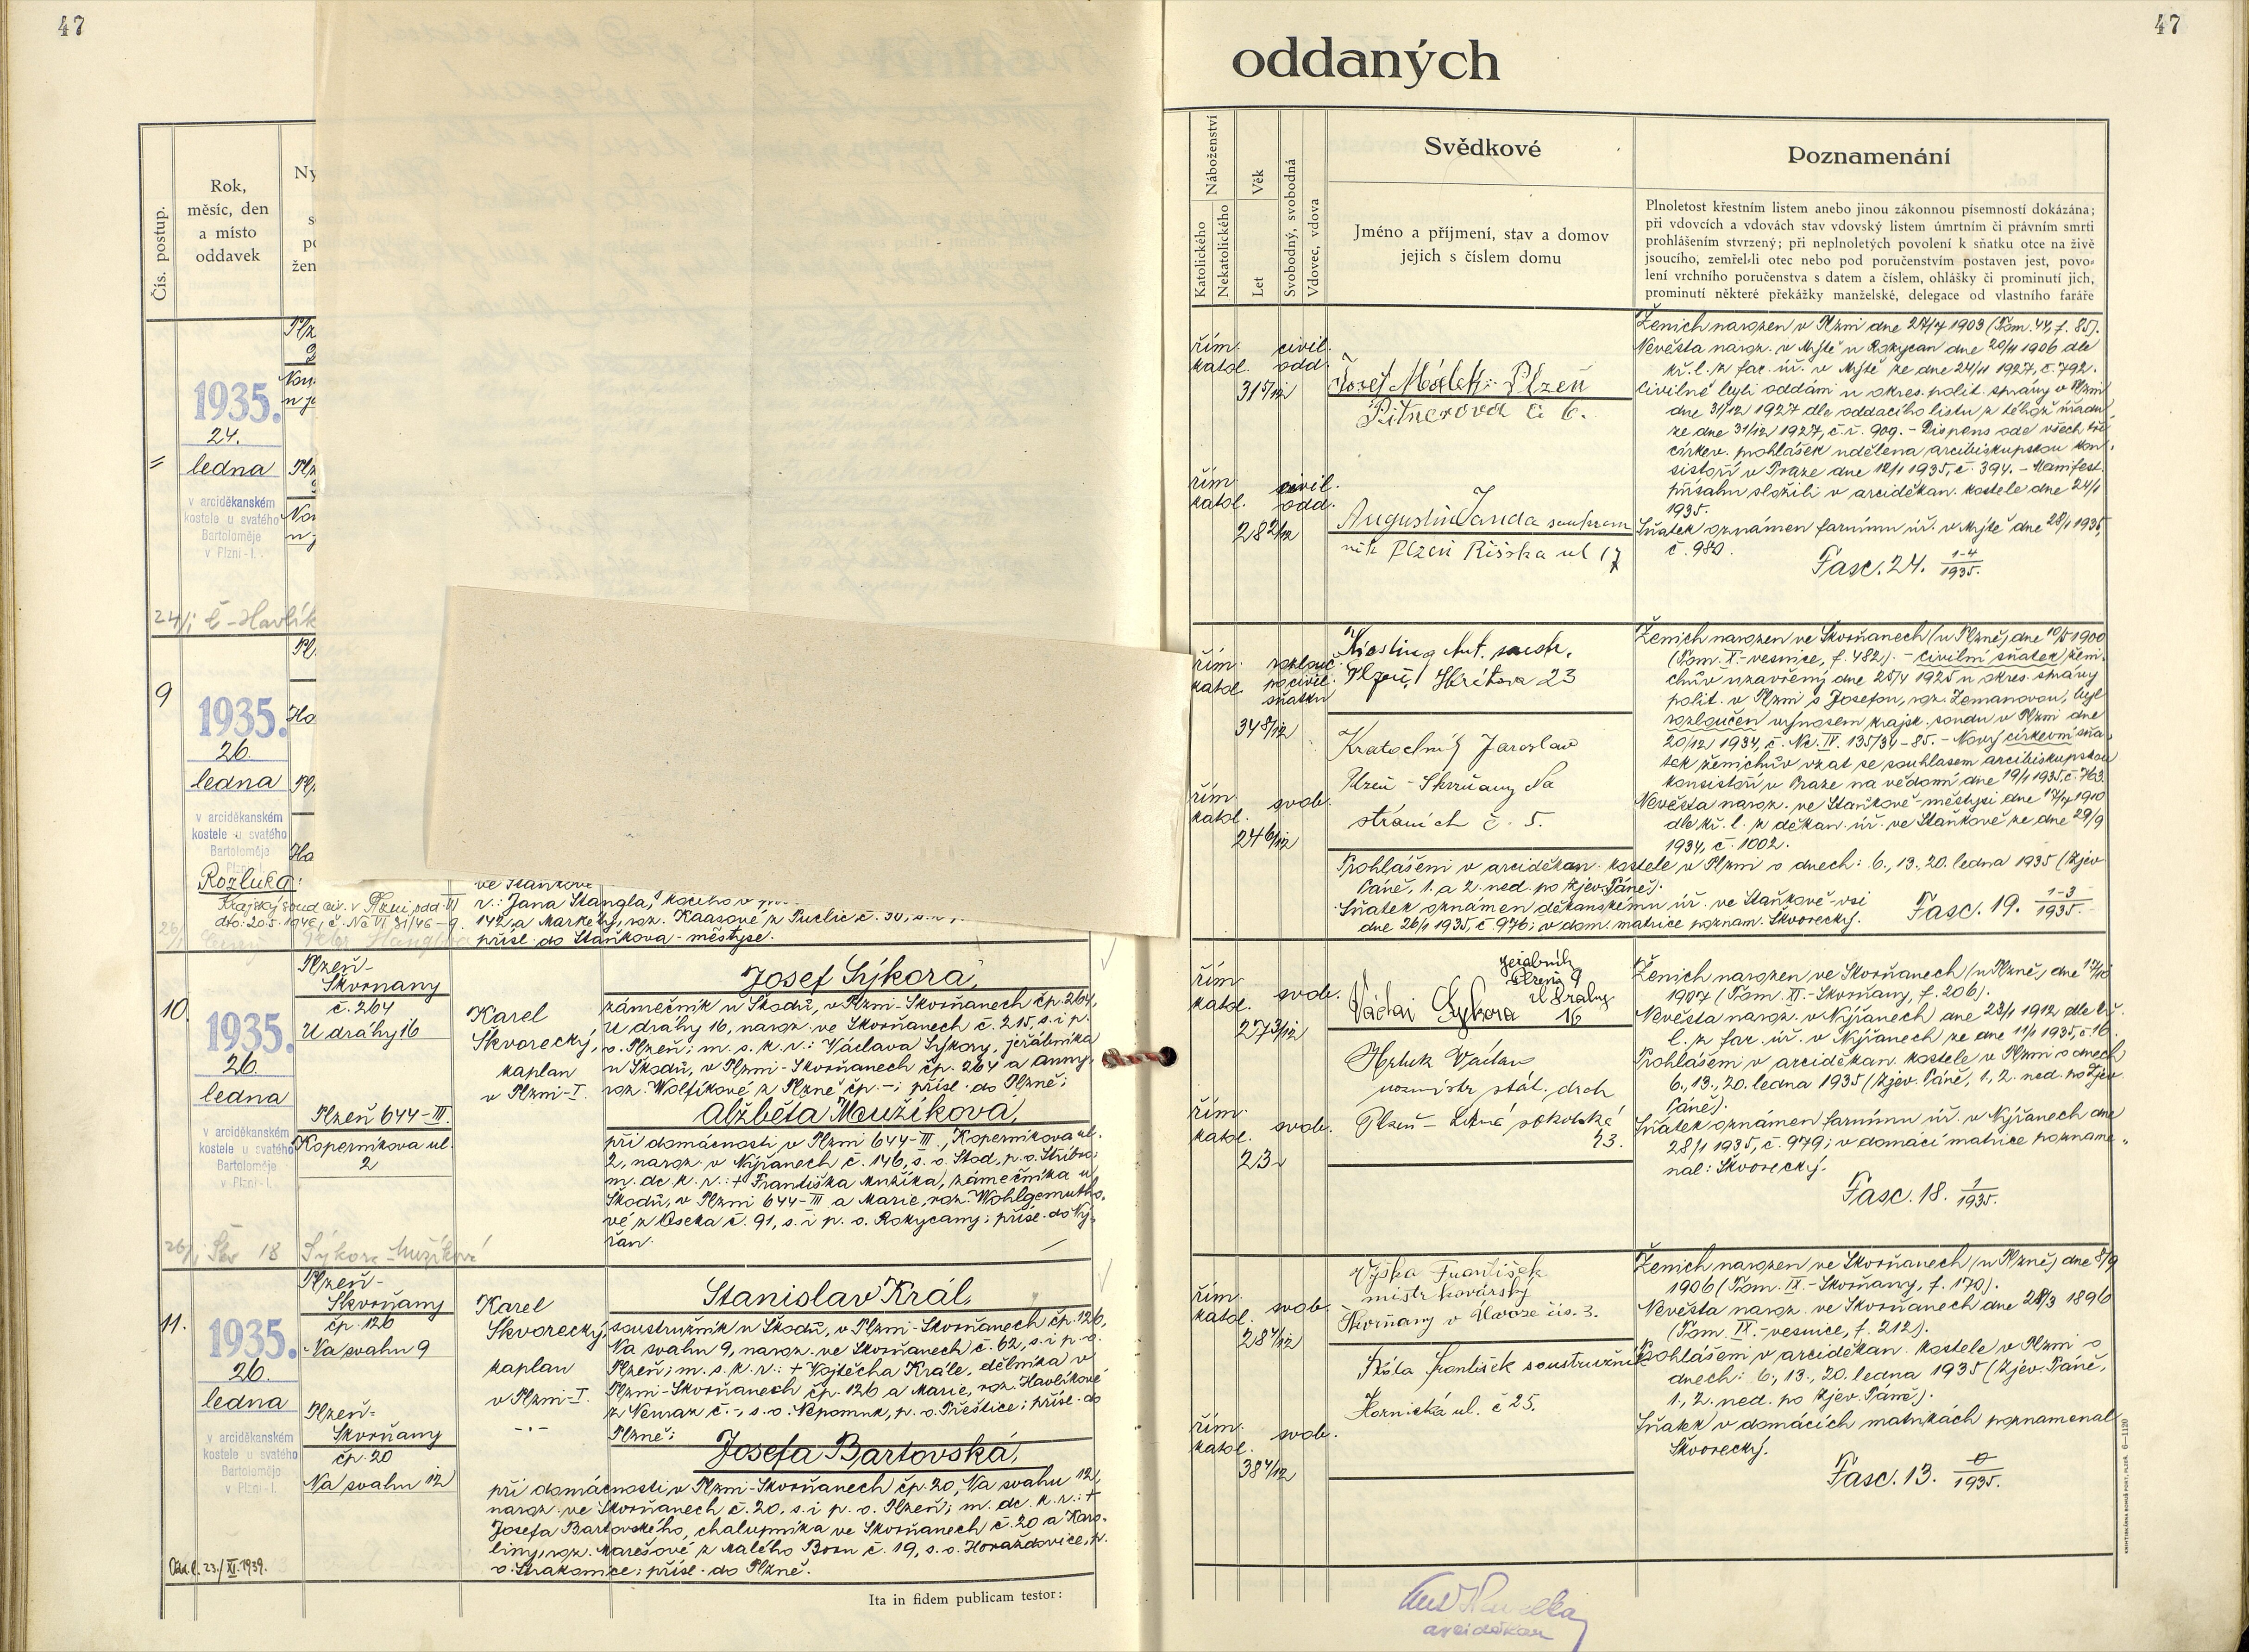 47
Čís. postup.
Rok,
měsíc, den
a místo
oddavek
Ny
1935.
24.
ledna
v arciděkanském
kostele u svatého
Bartoloměje
v Plzni-I.
24/1 Havlík
9
1935.
26.
ledna
v arciděkanském
kostele u svatého
Bartoloměje
Plzni-I.
Rozluka:
Krajský soud civ. v Plzni odd. VI
dto. 20.5.1946, č. Nc VI 31/46-9.
ve Staňkově
r.: Jana Stangla,
142, a Markéty, roz. Kaasové z Puclic č. 30,
přísl. do Staňkova-městyse.
10.
1935.
26.
ledna
v arciděkanském
kostele u svatého
Bartoloměje
v Plzni-I.
Plzeň-
Skvrňany
č. 264
U dráhy 16
Plzeň 644-III.
Koperníkova ul.
2
Karel
Škvorecký,
kaplan
v Plzni-I.
Josef Sýkora,
zámečník u Škodů, v Plzni-Skvrňanech čp. 264,
U dráhy 16, naroz. ve Skvrňanech č. 215, s. i p.
o. Plzeň; m. s. k. r.: Václava Sýkory, jeřábníka
u Škodů, v Plzni-Skvrňanech čp. 264 a Anny,
roz. Wolfíkové z Plzně čp. -; přísl. do Plzně;
Alžběta Moužíková,
při domácnosti v Plzni 644-III., Koperníkova ul.
2, naroz. v Nýřanech č. 146, s. o. Stod, p. o. Stříbro;
m. dc. k. r.: + Františka Mužíka, zámečníka u
Škodů, v Plzni 644-III a Marie, roz. Wohlgemutho-
vé z Oseka č. 91, s. i p. o. Rokycany; přísl. do Ný-
řan.
26/1 18 Sýkora Mužíková
11.
1935.
26.
ledna
v arciděkanském
kostele u svatého
Bartoloměje
v Plzni-I.
Plzeň-
Skvrňany
čp. 126
Na svahu 9
Plzeň-
Skvrňany
čp. 20
Na svahu 12
Karel
Škvorecký,
kaplan
v Plzni-I.
Stanislav Král,
soustružník u Škodů, v Plzni-Skvrňanech čp. 126,
Na svahu 9, naroz. ve Skvrňanech č. 62, s. i p. o.
Plzeň; m. s. k. r.: + Vojtěcha Krále, dělníka v
Plzni-Skvrňanech čp. 126 a Marie, roz. Havlíkové
z Neuraz č. -, s. o. Nepomuk, p. o. Přeštice; přísl. do
Plzně;
Josefa Bartovská,
při domácnosti v Plzni-Skvrňanech čp. 20, Na svahu 12,
naroz. ve Skvrňanech č. 20, s. i p. o. Plzeň; m. dc. k. r.: +
Josefa Bartovského, chalupníka ve Skvrňanech č. 20 a Karo-
liny, roz. Marešové z Malého Boru č. 19, s. o. Horažďovice, p.
o. Strakonice; přísl. do Plzně.
Odd. l. 23./XI. 1939.
Ita in fidem publicam testor:
oddaných
47
Náboženství
Katolického
Nekatolického
Věk
Let
Svobodný, svobodná
Vdovec, vdova
Svědkové
Jméno a příjmení, stav a domov
jejich s číslem domu
Poznamenání
Plnoletost křestním listem anebo jinou zákonnou písemností dokázána;
při vdovcích a vdovách stav vdovský listem úmrtním či právním smrti
prohlášením stvrzený; při neplnoletých povolení k sňatku otce na živě
jsoucího, zemřel-li otec nebo pod poručenstvím postaven jest, povo-
lení vrchního poručenstva s datem a číslem, ohlášky či prominutí jich,
prominutí některé překážky manželské, delegace od vlastního faráře
řím. civil.
katol. odd.
31 5/12
Josef Málek Plzeň
Pitnerova č 6.
řím. civil.
katol. odd.
28 2/12
Augustin Janda soustruž
ník Plzeň Říšská ul 17
Ženich narozen v Plzni dne 27/7 1903 (Tom. 44, f. 85).
Nevěsta naroz. v Mýtě u Rokycan dne 20/11 1906 dle
kř. l. z far. úř. v Mýtě ze dne 24/11 1927, č. 792.
Civilně byli oddáni u okres. polit. správy v Plzni
dne 31/12 1927 dle oddacího listu z téhož úřadu
ze dne 31/12 1927, č. ř. 909. - Dispens ode všech tří
církev. prohlášek udělena arcibiskupskou kon-
sistoří v Praze dne 12/1 1935, č. 394. - Manifest.
přísahu složili v arciděkan. kostele dne 24/1
1935.
Sňatek oznámen farnímu úř. v Mýtě dne 28/1 1935,
č. 980.
Fasc. 24. 1-4/1935.
řím. rozlouč.
katol. po civil.
sňatku
34 8/12
Kiesling Ant. soustr.
Plzeň, Skrétova 23
řím. svob.
katol.
24 6/12
Kratochvíl Jaroslav
Plzeň - Skvrňany Na
stráních č. 5.
Ženich narozen ve Skvrňanech (u Plzně) dne 10/5 1900
(Tom. X.-vesnice, f. 482). - Civilní sňatek ženi-
chův uzavřený dne 25/4 1925 u okres. správy
polit. v Plzni s Josefou, roz. Zemanovou, byl
rozloučen výnosem krajsk. soudu v Plzni dne
20/12 1934, č. Nc. IV. 135/34-85. - Nový církevní sňa-
tek ženichův vzat se souhlasem arcibiskupskou
konsistoří v Praze na vědomí dne 19/1 1935, č. 763.
Nevěsta naroz. ve Staňkově-městysi dne 17/7 1910
dle kř. l. z děkan. úř. ve Staňkově ze dne 29/9
1934, č. 1002.
Prohlášeni v arciděkan. kostele v Plzni o dnech: 6., 13., 20. ledna 1935 (Zjev.
Páně, 1. a 2. ned. po Zjev. Páně).
Sňatek oznámen děkanskému úř. ve Staňkově-vsi
dne 26/1 1935, č. 976; v dom. matrice poznam. Škvorecký.
Fasc. 19. 1-3/1935.
řím. svob.
katol.
27 3/12
jeřábník
Plzeň 9
Ul Dráhy
Václav Sykora 16
řím. svob.
katol.
23
Václav
stát. drah
Plzeň
23.
Ženich narozen ve Skvrňanech (u Plzně) dne 17/10
1907 (Tom. XI.-Skvrňany, f. 206).
Nevěsta naroz. v Nýřanech dne 23/1 1912 dle kř.
l. z far. úř. v Nýřanech ze dne 11/1 1935, č. 16.
Prohlášeni v arciděkan. kostele v Plzni o dnech
6., 13., 20. ledna 1935 (Zjev. Páně, 1., 2. ned. po Zjev.
Páně).
Sňatek oznámen farnímu úř. v Nýřanech dne
28/1 1935, č. 979; v domácí matrice pozname-
nal: Škvorecký.
Fasc. 18. 1/1935.
řím. svob.
katol.
28 4/12
Výska František
mistr kovářský
Skvrňany v Úvoze čís. 3.
řím. svob.
katol.
38 4/12
František soustružník
Hornická ul. č 25.
Ženich narozen ve Skvrňanech (u Plzně) dne 8/9
1906 (Tom. IX.-Skvrňany, f. 170).
Nevěsta naroz. ve Skvrňanech dne 28/3 1896
(Tom. IX.-vesnice, f. 212).
Prohlášeni v arciděkan. kostele v Plzni o
dnech: 6., 13., 20. ledna 1935 (Zjev. Páně,
1., 2. ned. po Zjev. Páně).
Sňatek v domácích matrikách poznamenal
Škvorecký.
Fasc. 13. 0/1935.
arciděkan